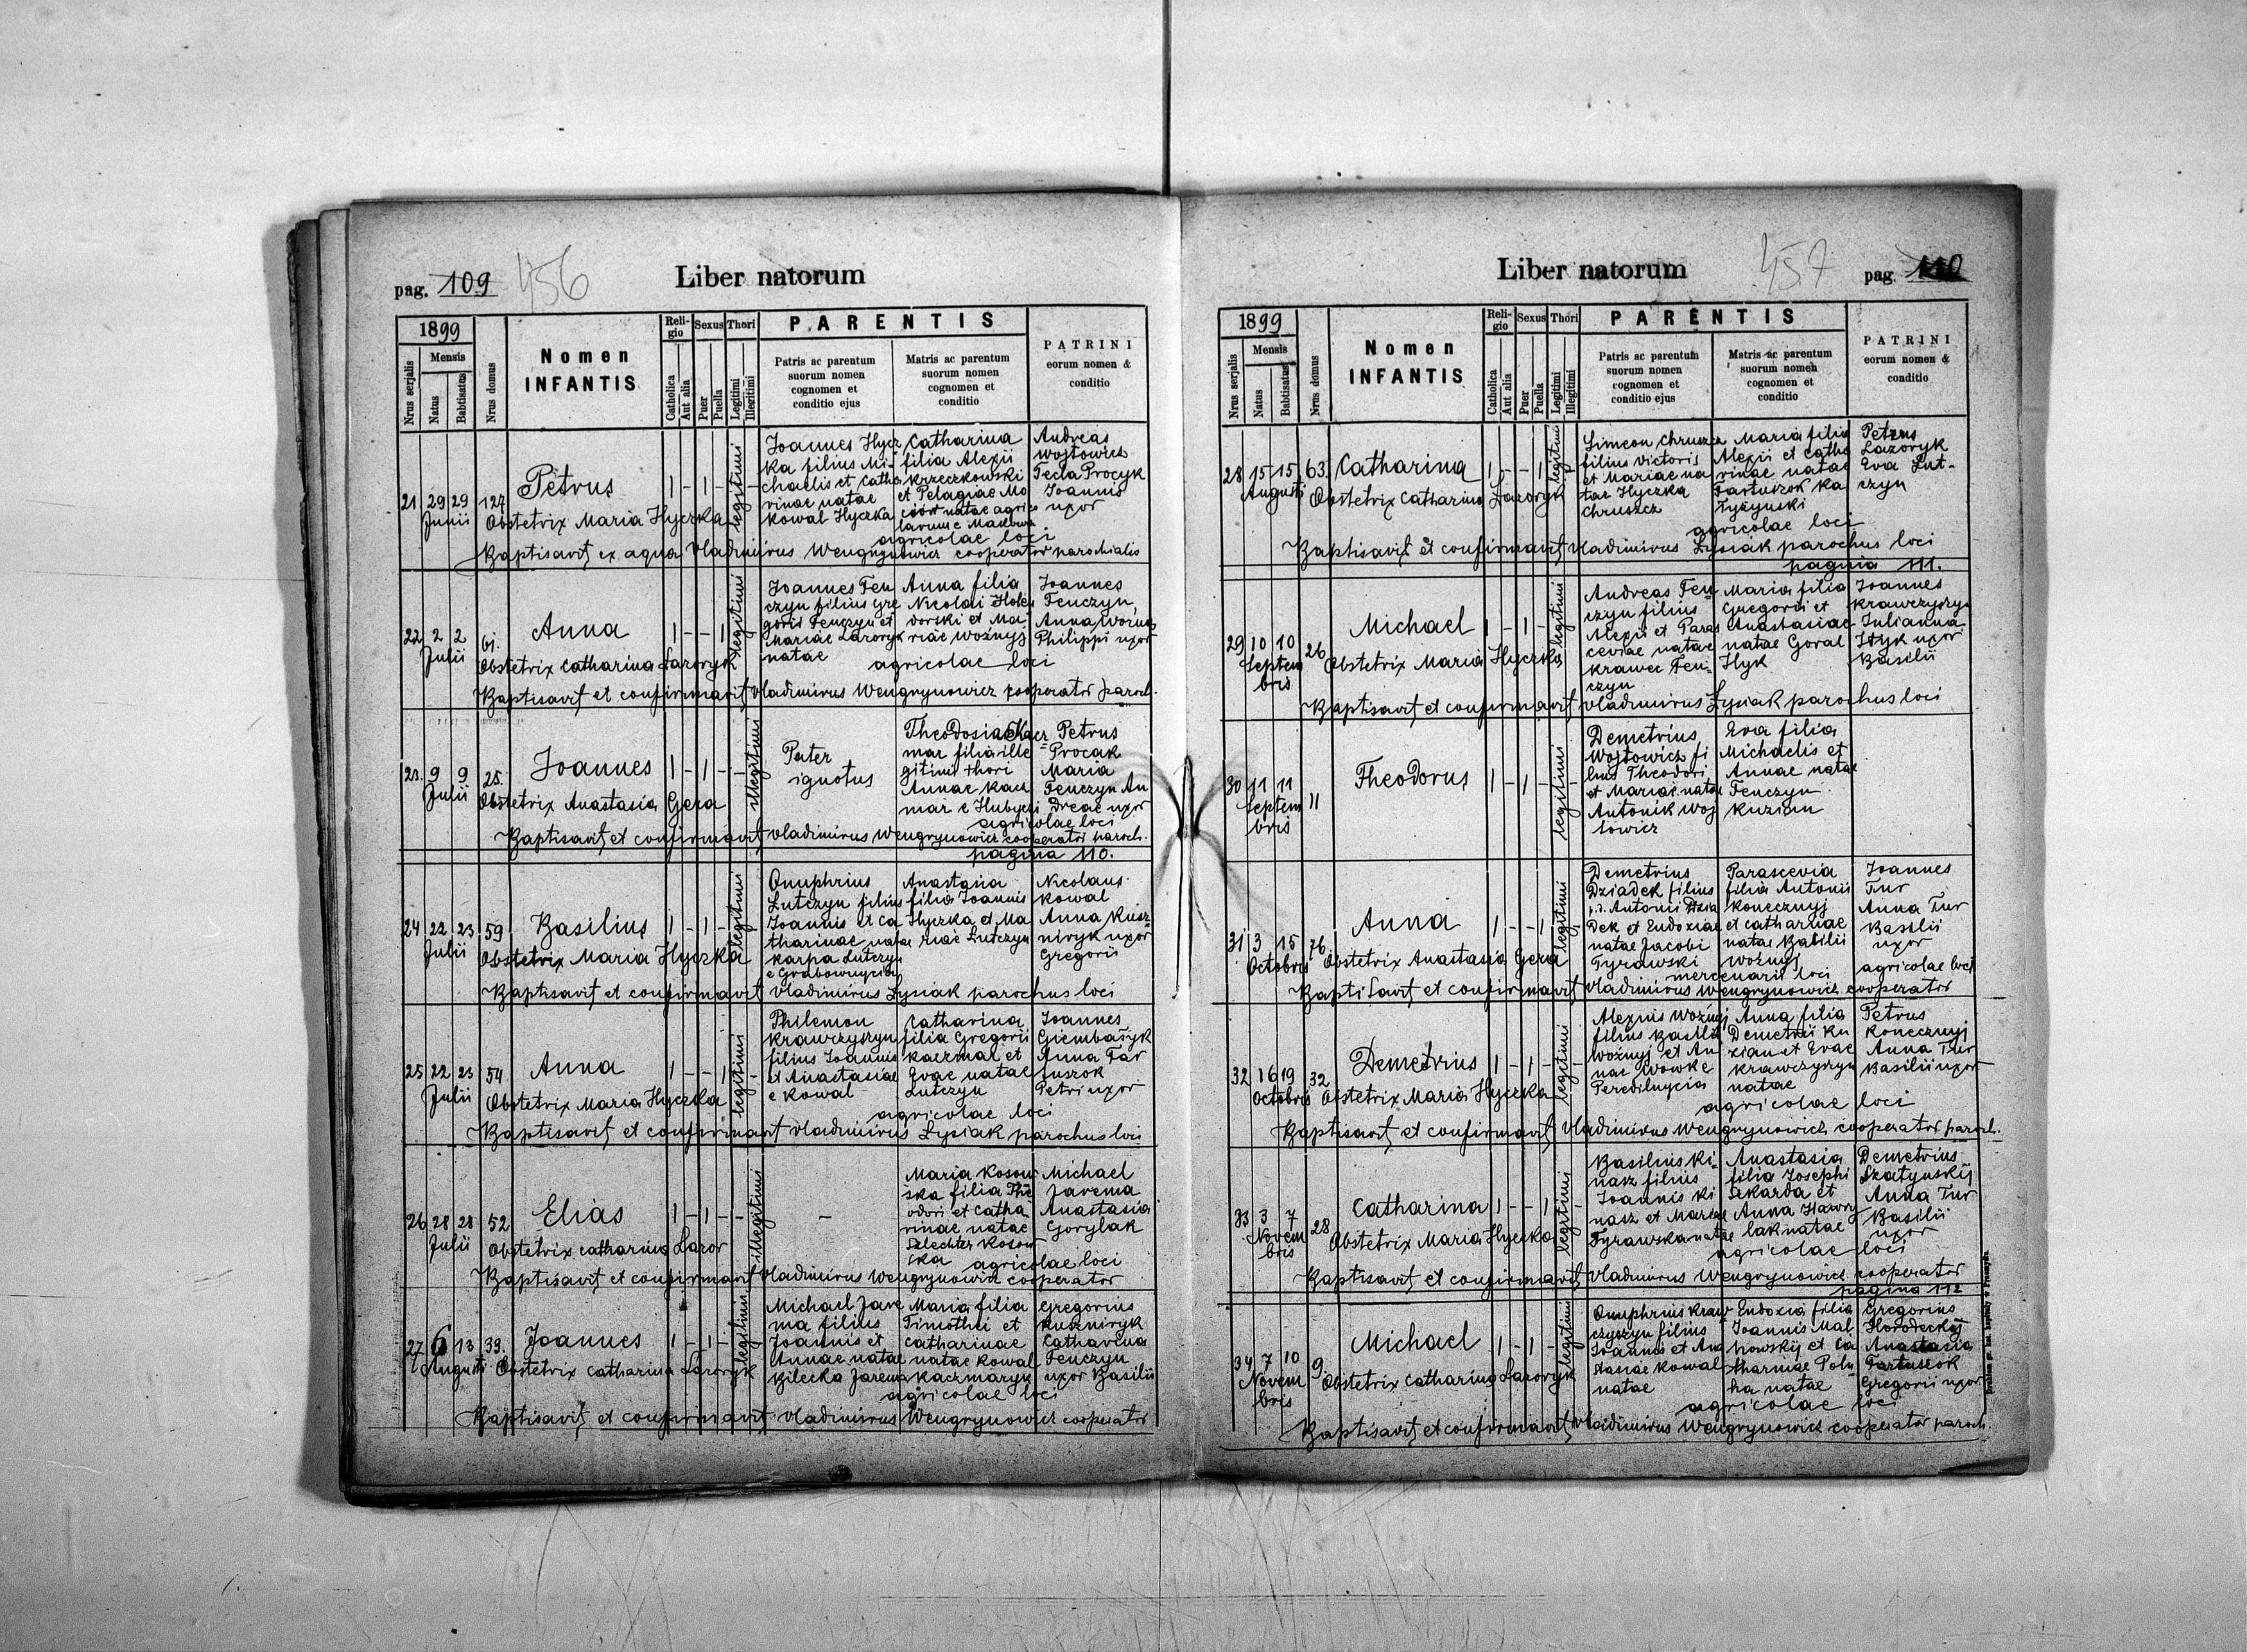 pag. 109 456 Liber natorum
1899
Nrus serjalis
Mensis
Natus
Babtisatus
Nrus domus
Nomen
INFANTIS
Religio
Catholica
Aut alia
Sexus
Puer
Puella
Thori
Legitimi
Illegitimi
PARENTIS
Patris ac parentum
suorum nomen
cognomen et
conditio ejus
Matris ac parentum
suorum nomen
cognomen et
conditio
PATRINI
eorum nomen &
conditio
21 29 29 127
Junii
Petrus
1 - 1 - -
legitimi
Obstetrix Maria Hyczka
Joannes Hycz
ka filius Mi-
chaelis et Catha
rinae natae
Kowal Hyczka
Catharina
filia Alexii
Krzeczkowski
et Pelagiae Mo
natae agrico
larum e Makowa
Andreas
Wojtowicz
Tecla Procyk
Joannis
uxor
agricolae loci
Baptisavit ex aqua Vladimirus Wengrynowicz cooperator parochialis
22 2 2 61.
Julii
Anna
1 - - 1
legitimi
Obstetrix Catharina Lazoryk
Joannes Fen
czyn filius Gre
gorii Fenczyn et
Mariae Lazoryk
natae
Anna filia
Nicolai Hole
dorski et Ma
riae Woźnyj
Joannes
Fenczyn,
Anna Worna
Philippi uxor
agricolae loci
Baptisavit et confirmavit Vladimirus Wengrynowicz cooperator paroch.
23. 9 9 25.
Julii
Joannes
1 - 1 - -
illegitimi
Obstetrix Anastasia Gera
Pater
ignotus
Theodosia Kacz
mar filia ille
gitimi thori
Annae Kacz
mar e Hubycei
Petrus
Procak
Maria
Fenczyn An
dreae uxor
agricolae loci
Baptisavit et confirmavit Vladimirus Wengrynowicz cooperator paroch.
pagina 110.
24 22 23 59
Julii
Basilius
1 - 1 - -
legitimi
Obstetrix Maria Hyczka
Onuphrius
Lutczyn filius
Joannis et Ca
tharinae natae
Karpa Lutczyn
e Grabownycia
Anastasia
filia Joannis
Hyczka et Ma
riae Lutczyn
Nicolaus
Kowal
Anna Kusz
niryk uxor
Gregorii
Baptisavit et confirmavit Vladimirus Lysiak parochus loci
25 22 23 54
Julii
Anna
1 - - 1 -
legitimi
Obstetrix Maria Hyczka
Philemon
Krawczyszyn
filius Joannis
et Anastasiae
e Kowal
Catharina
filia Gregorii
Kaczmar et
Evae natae
Lutczyn
Joannes
Giembasyk
Anna Tar
tuszok
Petri uxor
agricolae loci
Baptisavit et confirmavit Vladimirus Lysiak parochus loci
26 28 28 52
Julii
Elias
1 - 1 - -
illegitimi
Obstetrix Catharina Lazor
-
Maria Kosow
ska filia The
odori et Catha
rinae natae
Szlechter Kosow
ska
Michael
Jarema
Anastasia
Gorylak
agricolae loci
Baptisavit et confirmavit Vladimirus Wengrynowicz cooperator
27 6 13 39.
Augusti
Joannes
1 - 1 -
legitimi
Obstetrix Catharina Lazoryk
Michael Jare
ma filius
Joannis et
Annae natae
Bilecka Jarema
Maria filia
Timothei et
Catharinae
natae Kowal
Kaczmaryk
Gregorius
Kuszniryk
Catharina
Fenczyn
uxor Basilii
agricolae loci
Baptisavit et confirmavit Vladimirus Wengrynowicz cooperator
Liber natorum 457 pag. 110
1899
Nrus serjalis
Mensis
Natus
Babtisatus
Nrus domus
Nomen
INFANTIS
Religio
Catholica
Aut alia
Sexus
Puer
Puella
Thori
Legitimi
Illegitimi
PARENTIS
Patris ac parentum
suorum nomen
cognomen et
conditio ejus
Matris ac parentum
suorum nomen
cognomen et
conditio
PATRINI
eorum nomen &
conditio
28 15 15 63.
Augusti
Catharina
1 - - 1
legitimi
Obstetrix Catharina Lazoryk
Simeon Chruszcz
filius Victoris
et Mariae na
tae Hyczka
Chruszcz
Maria filia
Alexii et Catha
rinae natae
Tartuszok Ka
Tyzynski
Petrus
Lazoryk
Eva Lut-
czyn
agricolae loci
Baptisavit et confirmavit Vladimirus Lysiak parochus loci
pagina 111.
29 10 10 26
Septem
bris
Michael
1 - 1 -
legitimi
Obstetrix Maria Hyczka
Andreas Fen
czyn filius
Alexii et Paras
ceviae natae
Krawec Fen-
czyn
Maria filia
Gregorii et
Anastasiae
natae Goral
Hyk
Joannes
Krawczyszyn
Julianna
Hyk uxor
Basilii
Baptisavit et confirmavit Vladimirus Lysiak parochus loci
30 11 11 11
Septem
bris
Theodorus
1 - 1 - -
legitimi
Demetrius
Wojtowicz fi
lius Theodori
et Mariae natae
Antonik Woj
towicz
Eva filia
Michaelis et
Annae natae
Fenczyn
Kuzian
31 3 15 76
Octobris
Anna
1 - - 1
legitimi
Obstetrix Anastasia Gera
Demetrius
Dziadek filius
p.d. Antonii Dzia
dek et Eudoxiae
natae Jacobi
Tyrawski
Parascevia
filia Antonii
Konecznyj
et Catharinae
natae Basilii
Woźnyj
Joannes
Tur
Anna Tur
Basilii
uxor
agricolae loci
mercenarii loci
Baptisavit et confirmavit Vladimirus Wengrynowicz cooperator
32 16 19 32
Octobris
Demetrius
1 - 1 - -
legitimi
Obstetrix Maria Hyczka
Alexius Woźnyj
filius Basilii
Woźnyj et An
nae Wowke
Peredilnycia
Anna filia
Demetrii Ku
zian et Evae
Krawczyszyn
natae
Petrus
Konecznyj
Anna Tur
Basilii uxor
agricolae loci
Baptisavit et confirmavit Vladimirus Wengrynowicz cooperator paroch.
33 3 7 28
Novem
bris
Catharina
1 - - 1 -
legitimi
Obstetrix Maria Hyczka
Basilius Ki-
nasz filius
Joannis Ki
nasz et Mariae
Tyrawska natae
Anastasia
filia Josephi
Sekarda et
Anna Hawry
lak natae
Demetrius
Szatynskij
Anna Tur
Basilii
uxor
agricolae loci
Baptisavit et confirmavit Vladimirus Wengrynowicz cooperator
pagina 112
34 7 10 9.
Novem
bris
Michael
1 - 1 -
legitimi
Obstetrix Catharina Lazoryk
Onuphrius Kraw
czyszyn filius
Joannis et Ana
stasiae Kowal
natae
Eudoxia filia
Joannis Mal
nowskij et Ca
tharinae Polu
ha natae
Gregorius
Horodeckij
Anastasia
Tartuszok
Gregorii uxor
agricolae loci
Baptisavit et confirmavit Vladimirus Wengrynowicz cooperator paroch.